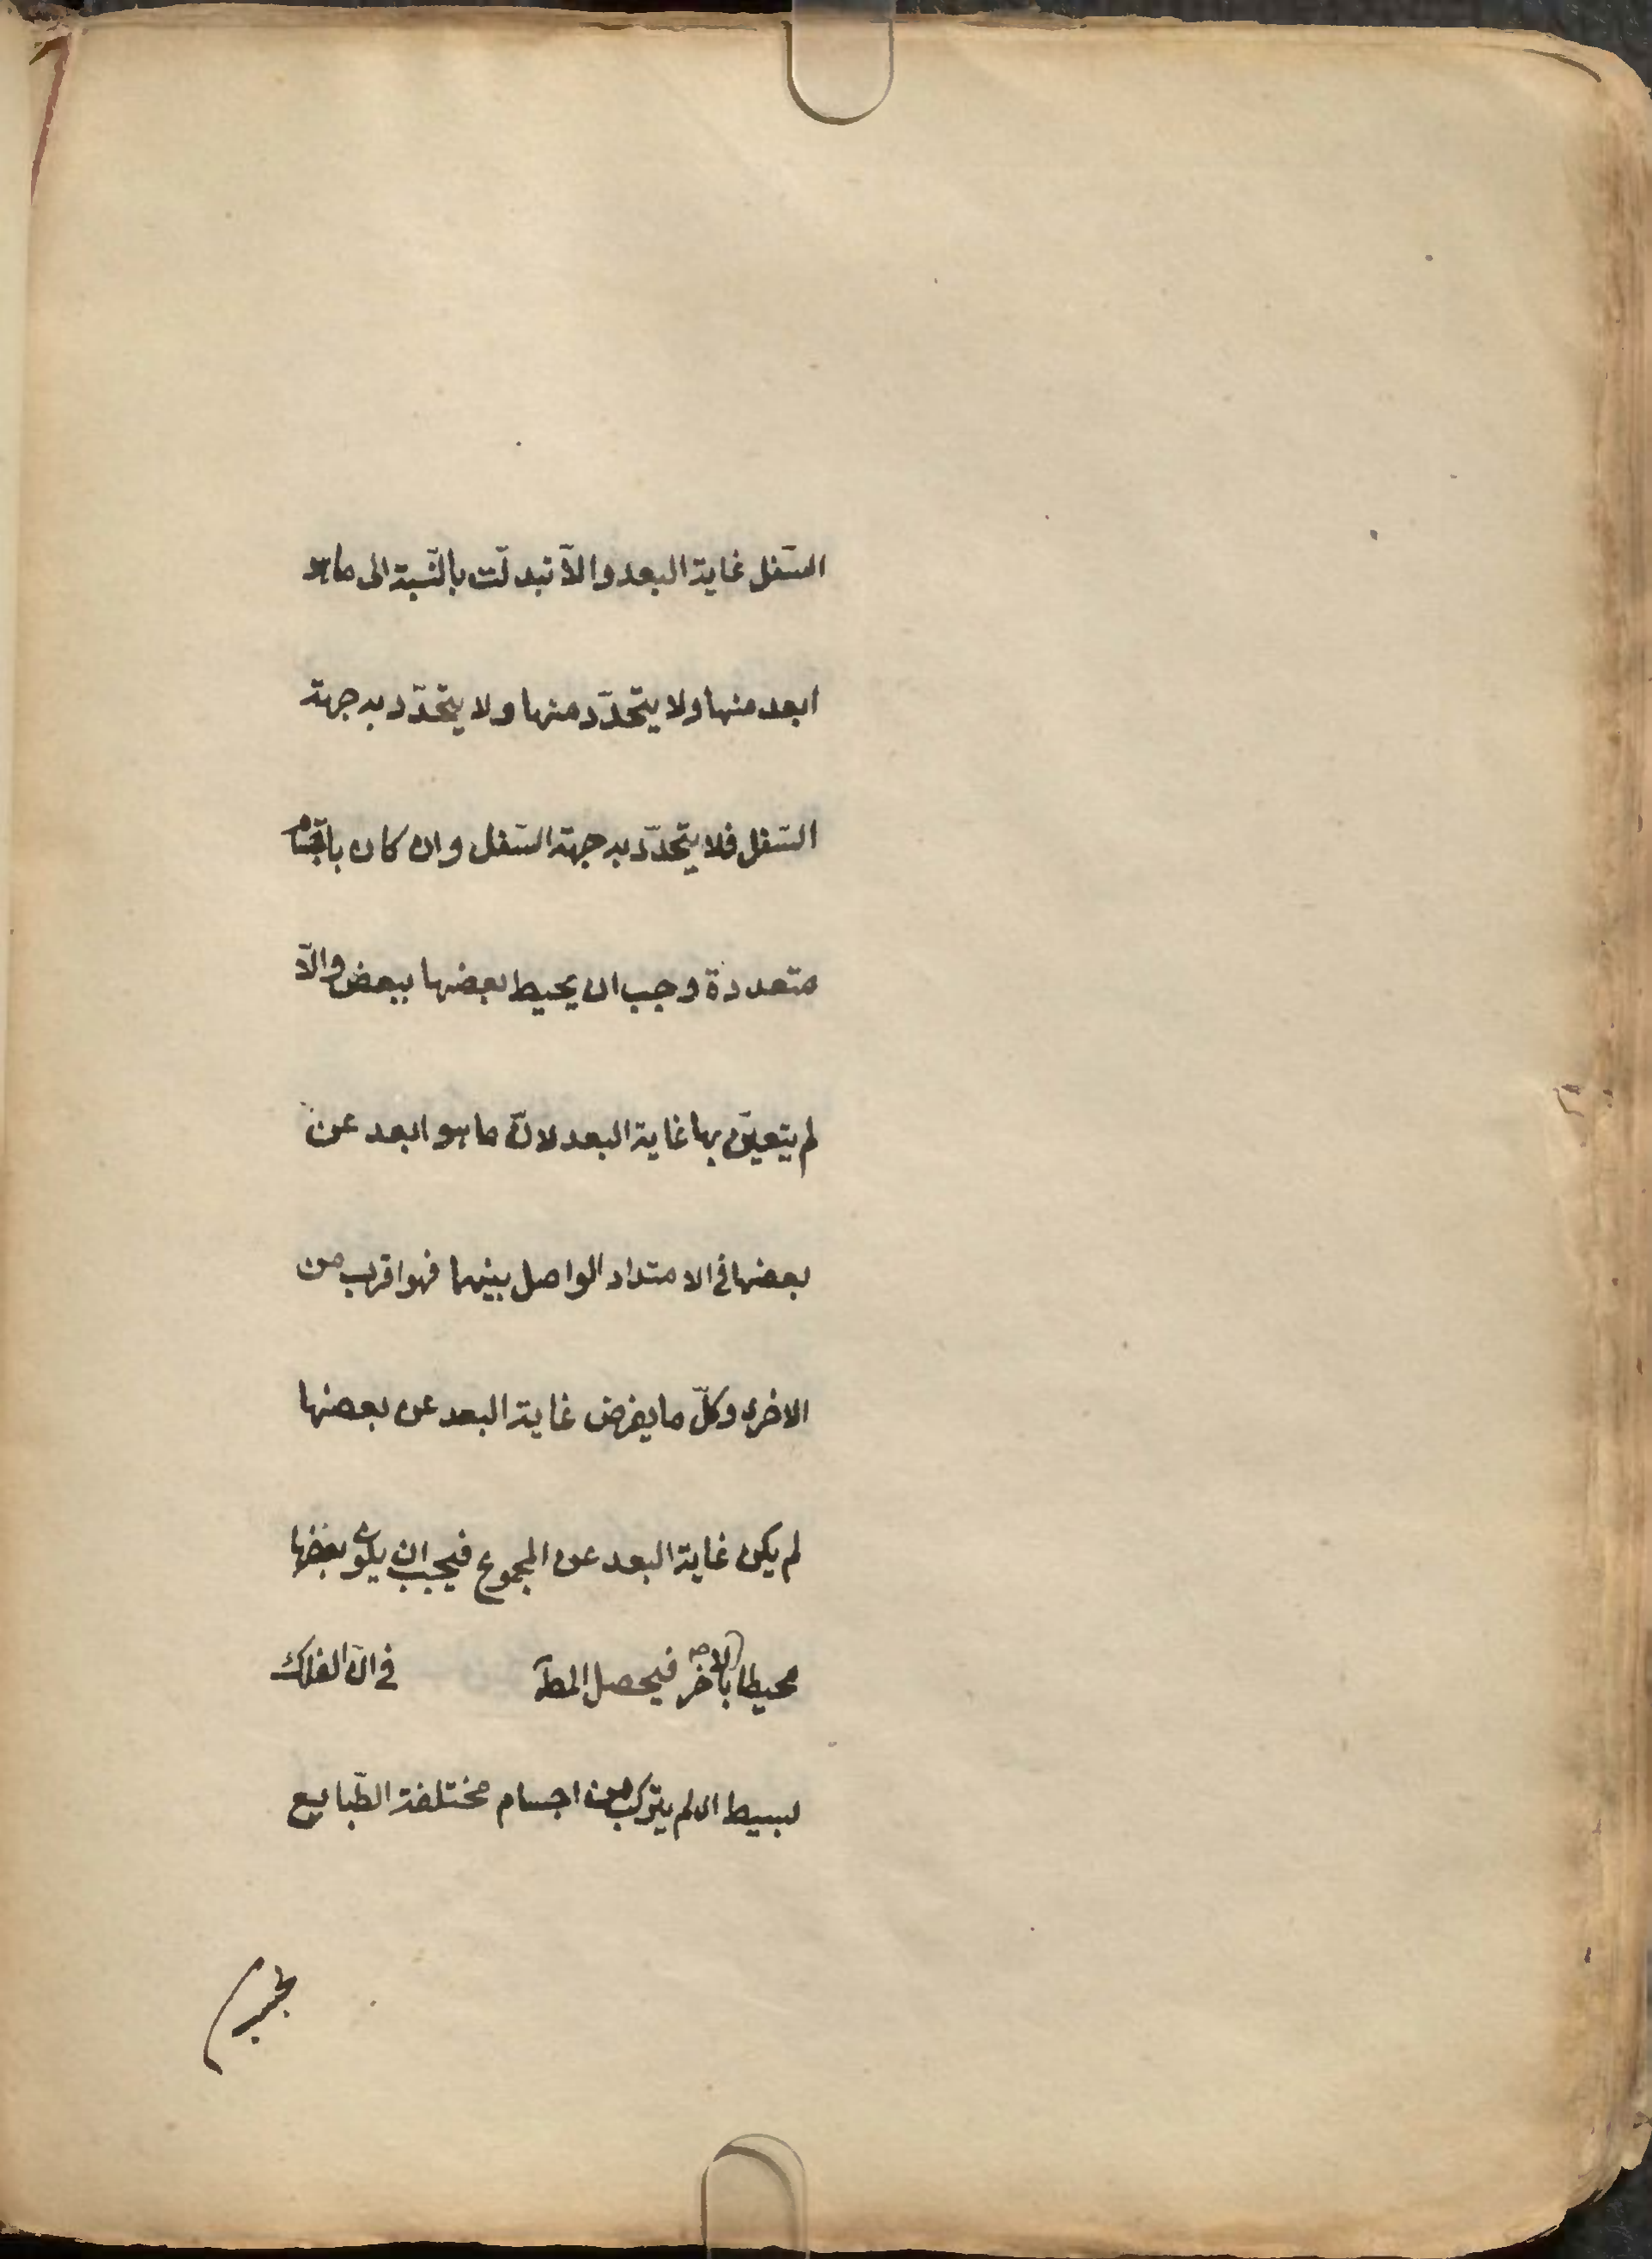 السّفل غاية البعد والّا تبدلّت بالنّسبة الى ما هو
ابعد منها ولا يتحدّد منها ولا يتحدّد به جهة
السّفل فلا يتحدّد به جهة السّفل وان كان باجسام
متعددة وجب ان يحيط بعضها ببعض والّا
لم يتعيّن بها غاية البعد لانّ ما هو ابعد عن
بعضها فى الامتداد الواصل بينهما فهو اقرب من
الاخرى وكلّ ما يفرض غاية البعد عن بعضها
لم يكن غاية البعد عن المجموع فيجب ان يكون بعضها
محيطا بالاخر فيحصل المطـ فى انّ الفلك
بسيط اى لم يتركب من اجسام مختلفة الطّبايع